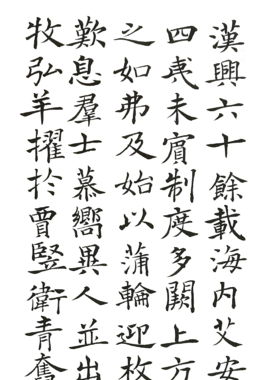 漢興六十餘載海内艾安
四夷未賓制度多闕上方
之如弗及始以蒲輪迎枚
歎息羣士慕嚮異人並出
牧弘羊擢扵賈豎衛青奮